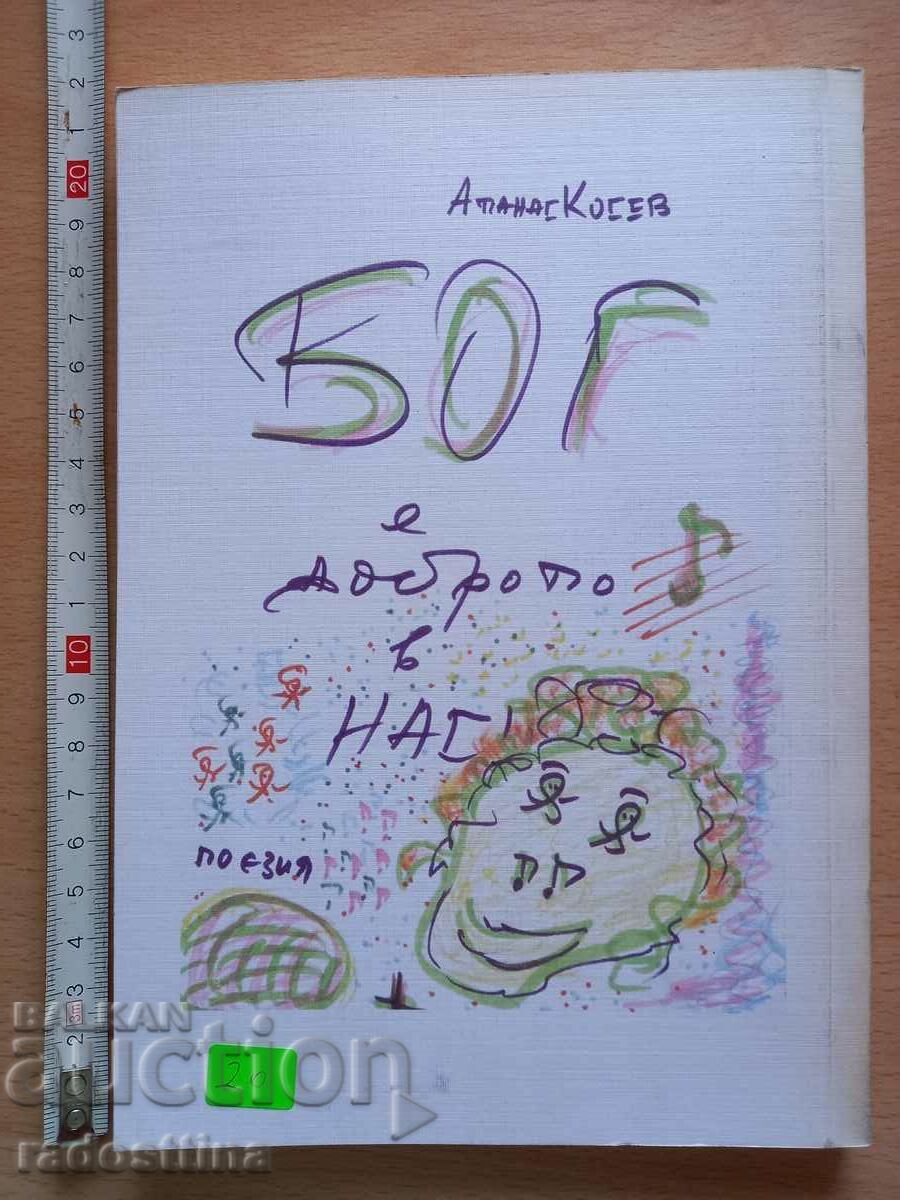 Атанас Косев
БОГ
е
доброто
в
НАС!
поезия
BALKAN
auction
radosttina
20
3
2
1
20
9
8
7
6
5
4
3
2
1
10
9
8
7
6
5
4
3
3m
2